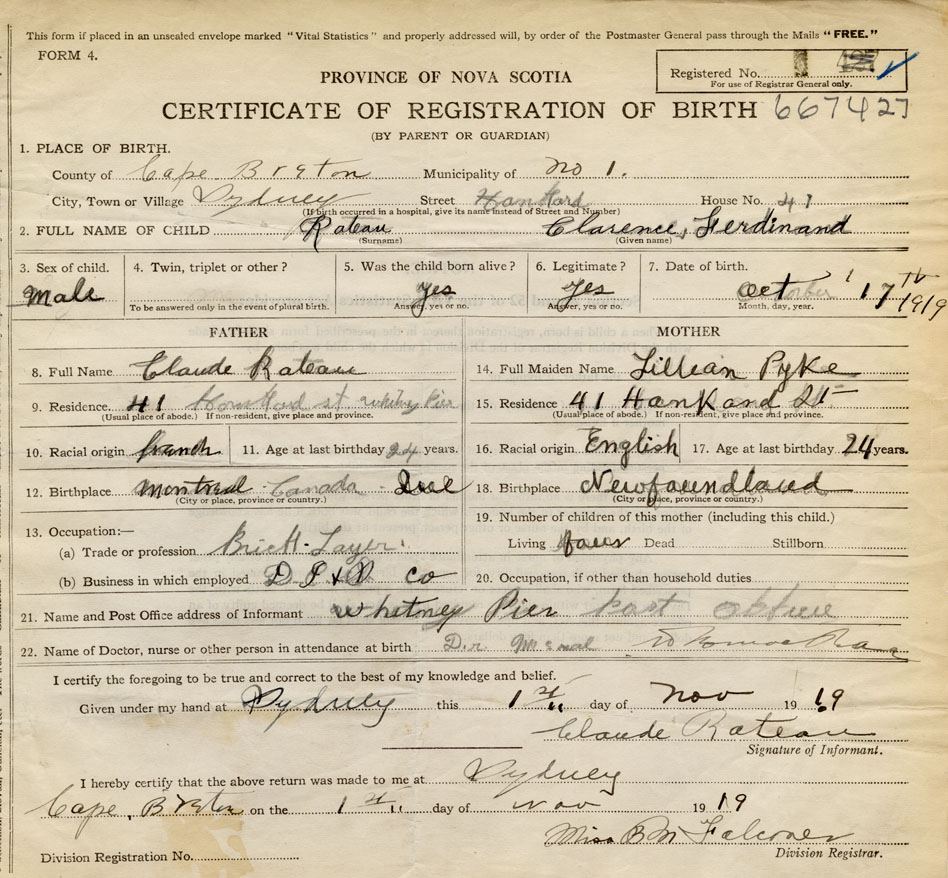 This form if placed in an unsealed envelope marked "Vital Statistics" and properly addressed will, by order of the Postmaster General pass through the Mails "FREE."
FORM 4.
PROVINCE OF NOVA SCOTIA
Registered No.
For use of Registrar General only.
CERTIFICATE OF REGISTRATION OF BIRTH 667427
(BY PARENT OR GUARDIAN)
1. PLACE OF BIRTH.
County of Cape Breton Municipality of No 1.
City, Town or Village Sydney Street Hankard House No. 41
(If birth occurred in a hospital, give its name instead of Street and Number)
2. FULL NAME OF CHILD Rateau Clarence, Ferdinand
(Surname) (Given name)
3. Sex of child. 4. Twin, triplet or other? 5. Was the child born alive? 6. Legitimate? 7. Date of birth.
Male Yes Yes Oct 17th 1919
To be answered only in the event of plural birth. Answer, yes or no. Answer, yes or no. Month, day, year.
FATHER
8. Full Name Claude Rateau
9. Residence 41 st Whitney Pier
(Usual place of abode.) If non-resident, give place and province.
10. Racial origin french 11. Age at last birthday 24 years.
12. Birthplace Montreal Canada Que
(City or place, province or country.)
13. Occupation:—
(a) Trade or profession Brick-Layer.
(b) Business in which employed Co
MOTHER
14. Full Maiden Name Lillian Pyke
15. Residence 41 Hankard St
(Usual place of abode.) If non-resident, give place and province.
16. Racial origin English 17. Age at last birthday 24 years.
18. Birthplace Newfoundland
(City or place, province or country.)
19. Number of children of this mother (including this child.)
Living four Dead Stillborn
20. Occupation, if other than household duties
21. Name and Post Office address of Informant Whitney Pier
22. Name of Doctor, nurse or other person in attendance at birth Dr.
I certify the foregoing to be true and correct to the best of my knowledge and belief.
Given under my hand at Sydney this 1st day of Nov 1919
Claude Rateau
Signature of Informant.
I hereby certify that the above return was made to me at Sydney
Cape, Breton on the 1st day of Nov 1919
Miss B M Falconer
Division Registration No. Division Registrar.